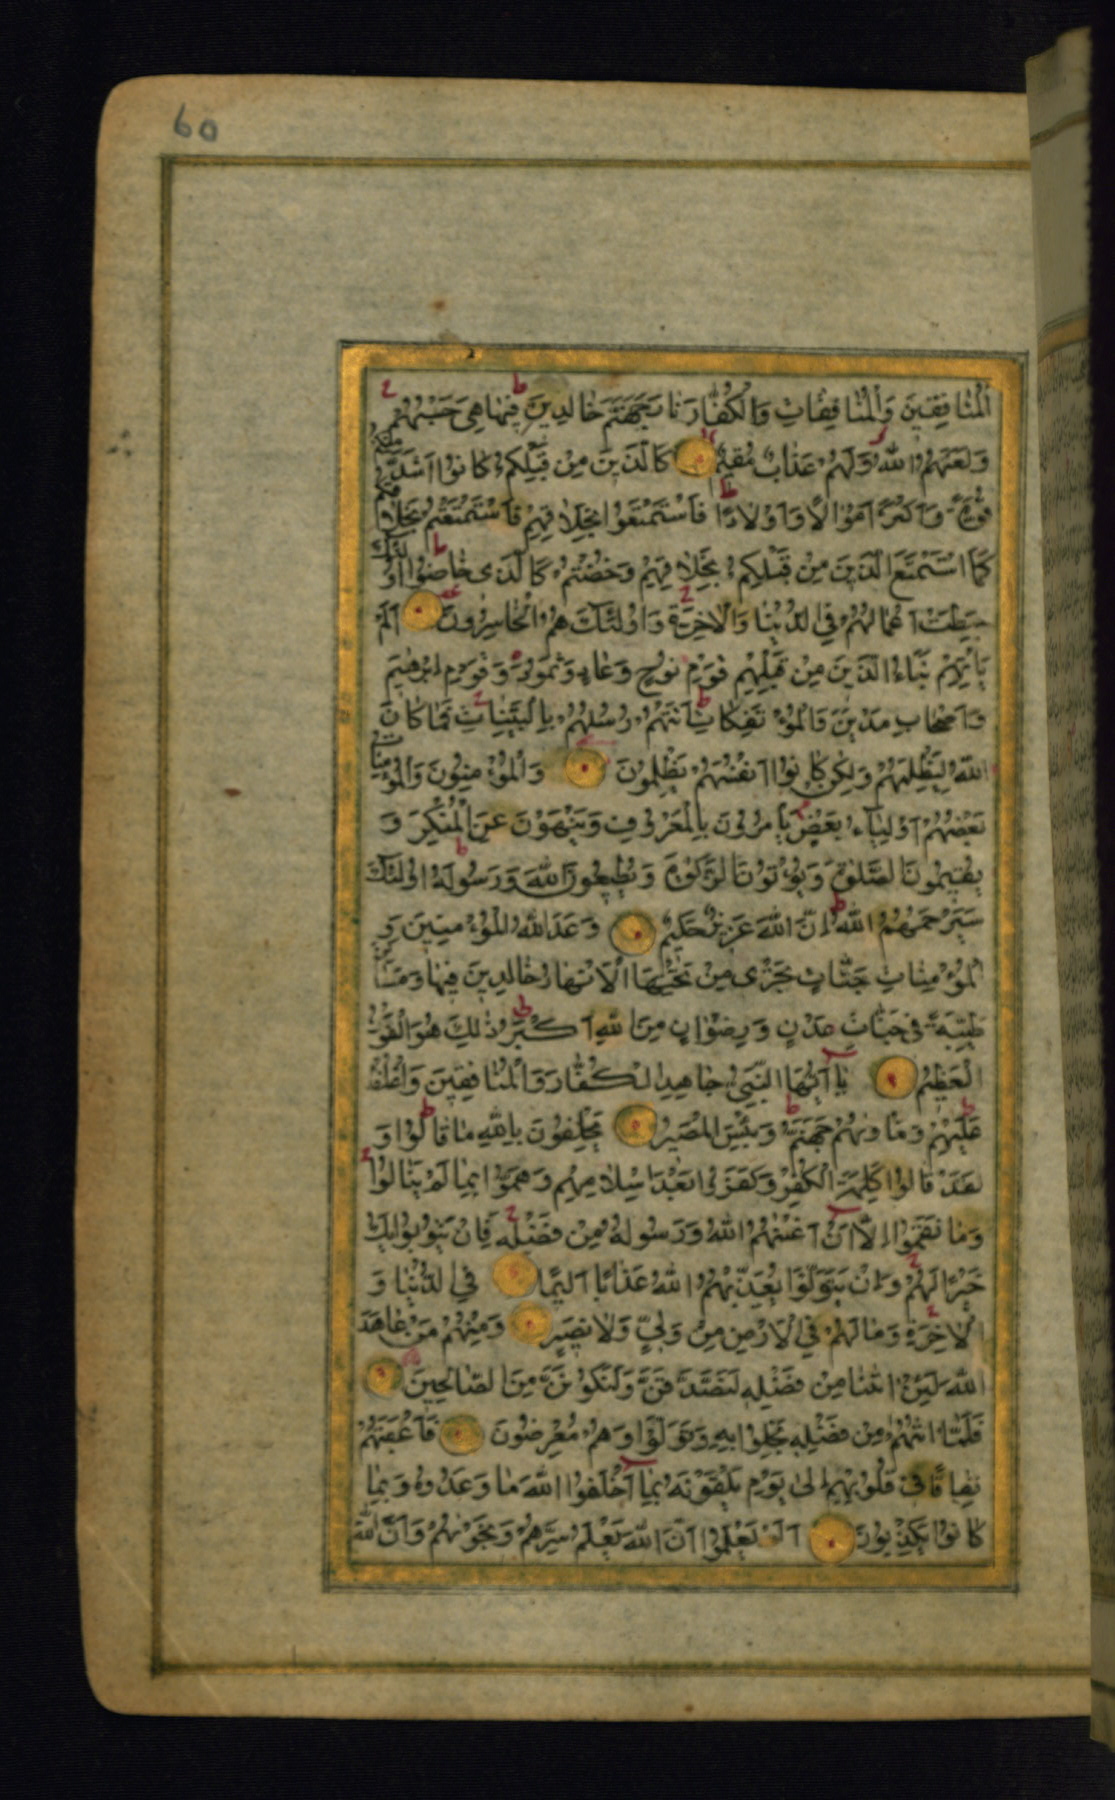 60
الْمُنَافِقِينَ وَالْمُنَافِقَاتِ وَالْكُفَّارَ نَارَ جَهَنَّمَ خَالِدِينَ فِيهَا هِيَ حَسْبُهُمْ
وَلَعَنَهُمُ اللّٰهُ وَلَهُمْ عَذَابٌ مُقِيمٌ كَالَّذِينَ مِنْ قَبْلِكُمْ كَانُوا اَشَدَّ مِنْكُمْ
قُوَّةً وَاَكْثَرَ اَمْوَالًا وَاَوْلَادًا فَاسْتَمْتَعُوا بِخَلَاقِهِمْ فَاسْتَمْتَعْتُمْ بِخَلَاقِكُمْ
كَمَا اسْتَمْتَعَ الَّذِينَ مِنْ قَبْلِكُمْ بِخَلَاقِهِمْ وَخُضْتُمْ كَالَّذِى خَاضُوا اُولٰئِكَ
حَبِطَتْ اَعْمَالُهُمْ فِي الدُّنْيَا وَالْاٰخِرَةِ وَاُولٰئِكَ هُمُ الْخَاسِرُونَ اَلَمْ
يَاْتِهِمْ نَبَاُ الَّذِينَ مِنْ قَبْلِهِمْ قَوْمِ نُوحٍ وَعَادٍ وَثَمُودَ وَقَوْمِ اِبْرٰهِيمَ
وَاَصْحَابِ مَدْيَنَ وَالْمُؤْتَفِكَاتِ اَتَتْهُمْ رُسُلُهُمْ بِالْبَيِّنَاتِ فَمَا كَانَ
اللّٰهُ لِيَظْلِمَهُمْ وَلٰكِنْ كَانُوا اَنْفُسَهُمْ يَظْلِمُونَ وَالْمُؤْمِنُونَ وَالْمُؤْمِنَاتُ
بَعْضُهُمْ اَوْلِيَاءُ بَعْضٍ يَاْمُرُونَ بِالْمَعْرُوفِ وَيَنْهَوْنَ عَنِ الْمُنْكَرِ وَ
يُقِيمُونَ الصَّلٰوةَ وَيُؤْتُونَ الزَّكٰوةَ وَيُطِيعُونَ اللّٰهَ وَرَسُولَهُ اُولٰئِكَ
سَيَرْحَمُهُمُ اللّٰهُ اِنَّ اللّٰهَ عَزِيزٌ حَكِيمٌ وَعَدَ اللّٰهُ الْمُؤْمِنِينَ وَ
الْمُؤْمِنَاتِ جَنَّاتٍ تَجْرِى مِنْ تَحْتِهَا الْاَنْهَارُ خَالِدِينَ فِيهَا وَمَسَاكِنَ
طَيِّبَةً فِى جَنَّاتِ عَدْنٍ وَرِضْوَانٌ مِنَ اللّٰهِ اَكْبَرُ ذٰلِكَ هُوَ الْفَوْزُ
الْعَظِيمُ يَا اَيُّهَا النَّبِيُّ جَاهِدِ الْكُفَّارَ وَالْمُنَافِقِينَ وَاغْلُظْ
عَلَيْهِمْ وَمَاْوٰيهُمْ جَهَنَّمُ وَبِئْسَ الْمَصِيرُ يَحْلِفُونَ بِاللّٰهِ مَا قَالُوا وَ
لَقَدْ قَالُوا كَلِمَةَ الْكُفْرِ وَكَفَرُوا بَعْدَ اِسْلَامِهِمْ وَهَمُّوا بِمَا لَمْ يَنَالُوا
وَمَا نَقَمُوا اِلَّا اَنْ اَغْنٰهُمُ اللّٰهُ وَرَسُولُهُ مِنْ فَضْلِهِ فَاِنْ يَتُوبُوا يَكُ
خَيْرًا لَهُمْ وَاِنْ يَتَوَلَّوْا يُعَذِّبْهُمُ اللّٰهُ عَذَابًا اَلِيمًا فِي الدُّنْيَا وَ
الْاٰخِرَةِ وَمَا لَهُمْ فِي الْاَرْضِ مِنْ وَلِيٍّ وَلَا نَصِيرٍ وَمِنْهُمْ مَنْ عَاهَدَ
اللّٰهَ لَئِنْ اٰتٰنَا مِنْ فَضْلِهِ لَنَصَّدَّقَنَّ وَلَنَكُونَنَّ مِنَ الصَّالِحِينَ
فَلَمَّا اٰتٰهُمْ مِنْ فَضْلِهِ بَخِلُوا بِهِ وَتَوَلَّوْا وَهُمْ مُعْرِضُونَ فَاَعْقَبَهُمْ
نِفَاقًا فِى قُلُوبِهِمْ اِلٰى يَوْمِ يَلْقَوْنَهُ بِمَا اَخْلَفُوا اللّٰهَ مَا وَعَدُوهُ وَبِمَا
كَانُوا يَكْذِبُونَ اَلَمْ يَعْلَمُوا اَنَّ اللّٰهَ يَعْلَمُ سِرَّهُمْ وَنَجْوٰيهُمْ وَاَنَّ اللّٰهَ